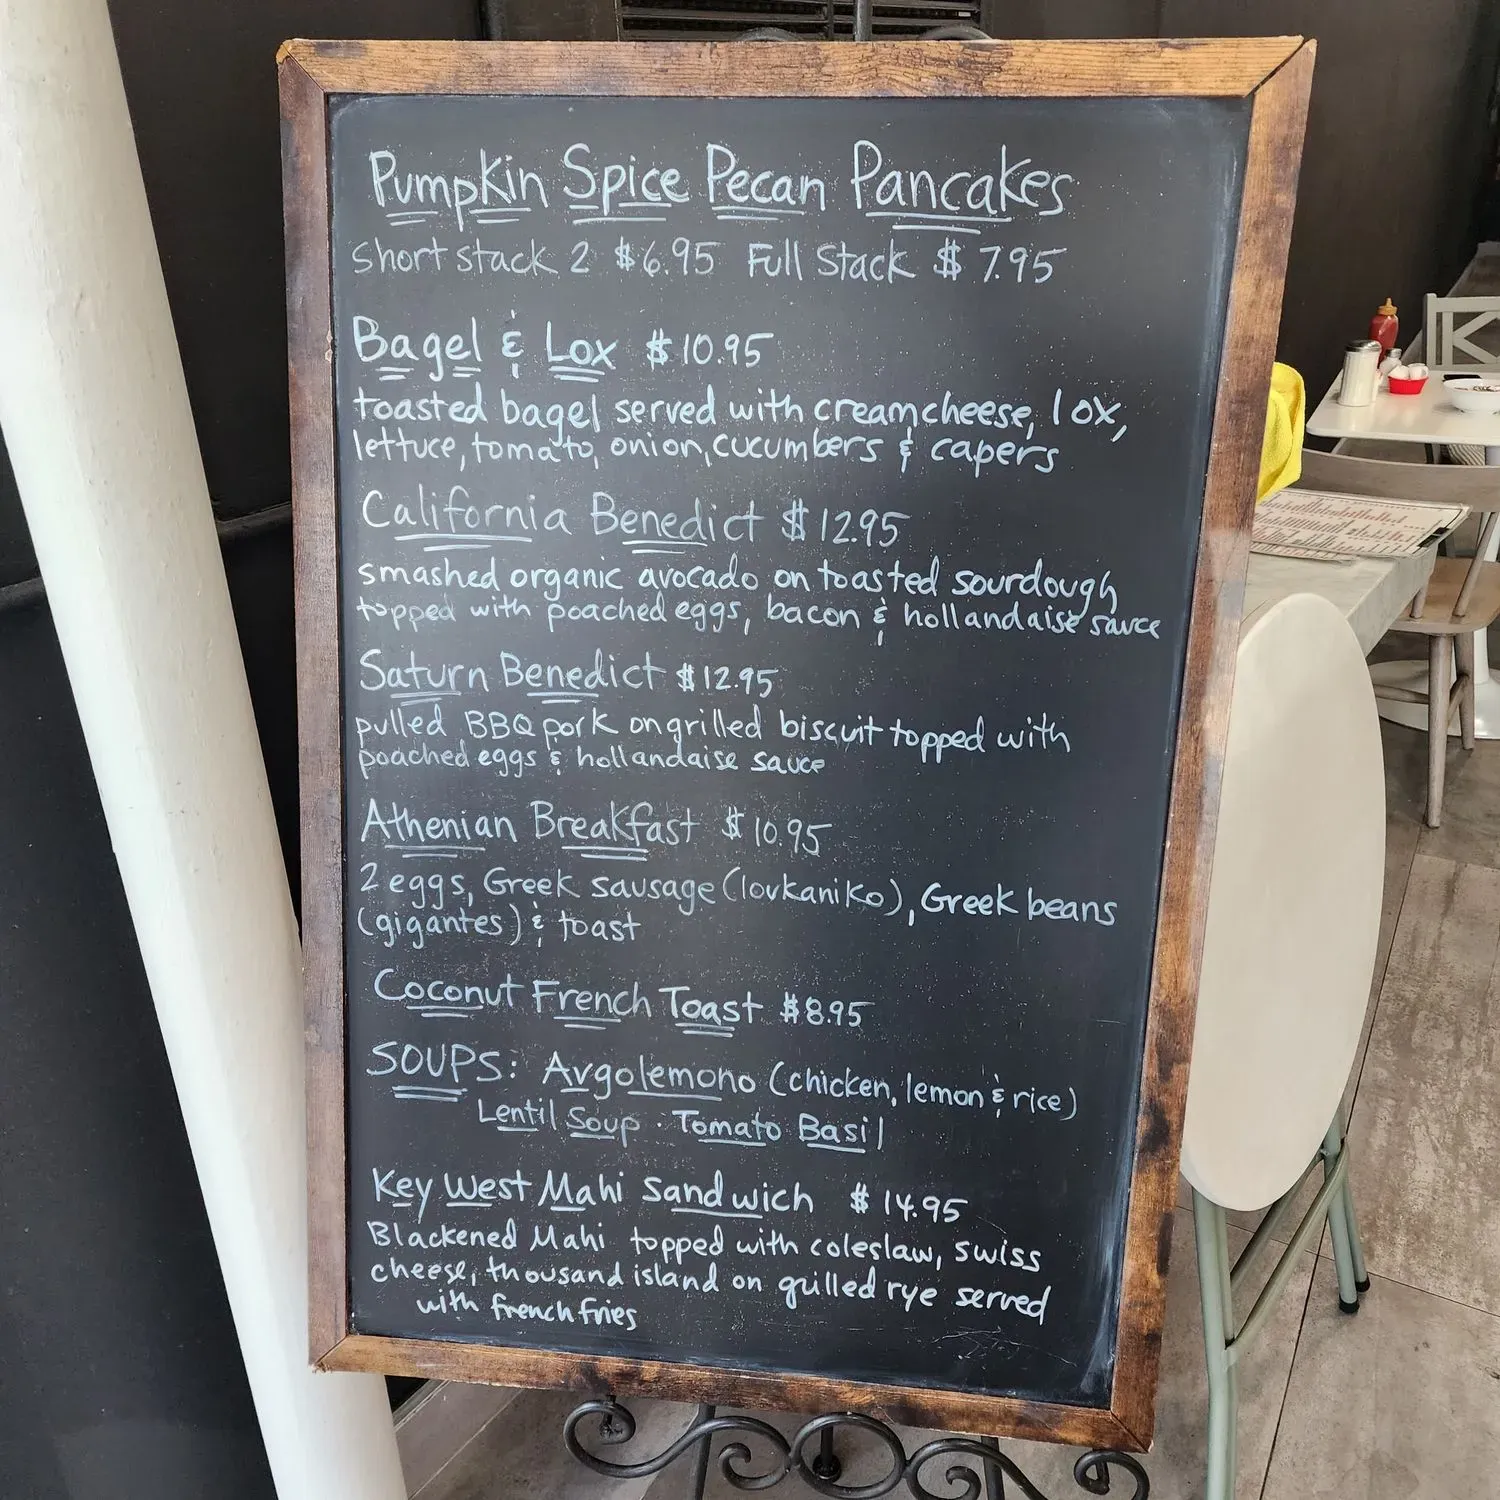 Pumpkin Spice Pecan Pancakes
short stack 2 $6.95 Full Stack $7.95
Bagel & Lox $10.95
toasted bagel served with creamcheese, lox,
lettuce, tomato, onion, cucumbers & capers
California Benedict $12.95
smashed organic avocado on toasted sourdough
topped with poached eggs, bacon & hollandaise sauce
Saturn Benedict $12.95
pulled BBQ pork on grilled biscuit topped with
poached eggs & hollandaise sauce
Athenian Breakfast $10.95
2 eggs, Greek sausage (loukaniko), Greek beans
(gigantes) & toast
Coconut French Toast $8.95
SOUPS: Avgolemono (chicken, lemon & rice)
Lentil Soup · Tomato Basil
Key West Mahi Sandwich $14.95
Blackened Mahi topped with coleslaw, swiss
cheese, thousand island on grilled rye served
with french fries